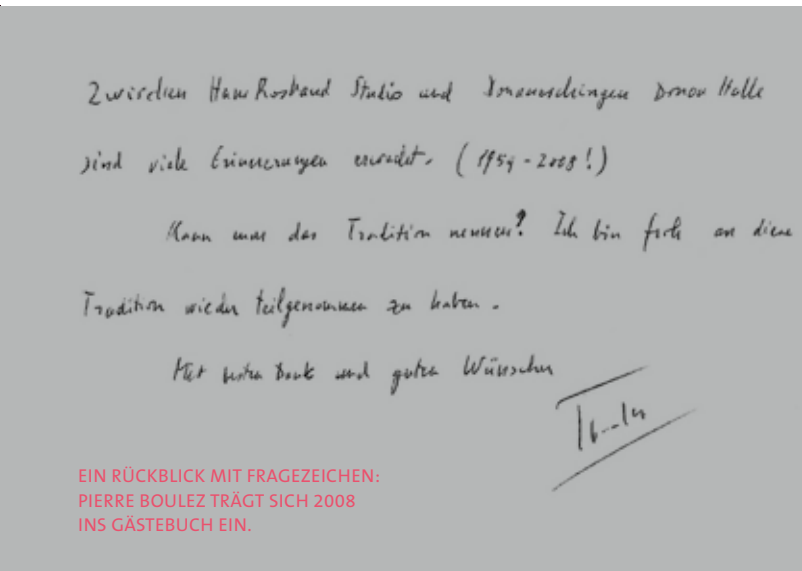 Zwischen Hans Rosbaud Studio und Donaueschingen Donau Halle
sind viele Erinnerungen erwacht. (1954-2008!)
Kann man das Tradition nennen? Ich bin froh an diese
Tradition wieder teilgenommen zu haben.
Mit besten Dank und guten Wünschen
EIN RÜCKBLICK MIT FRAGEZEICHEN:
PIERRE BOULEZ TRÄGT SICH 2008
INS GÄSTEBUCH EIN.